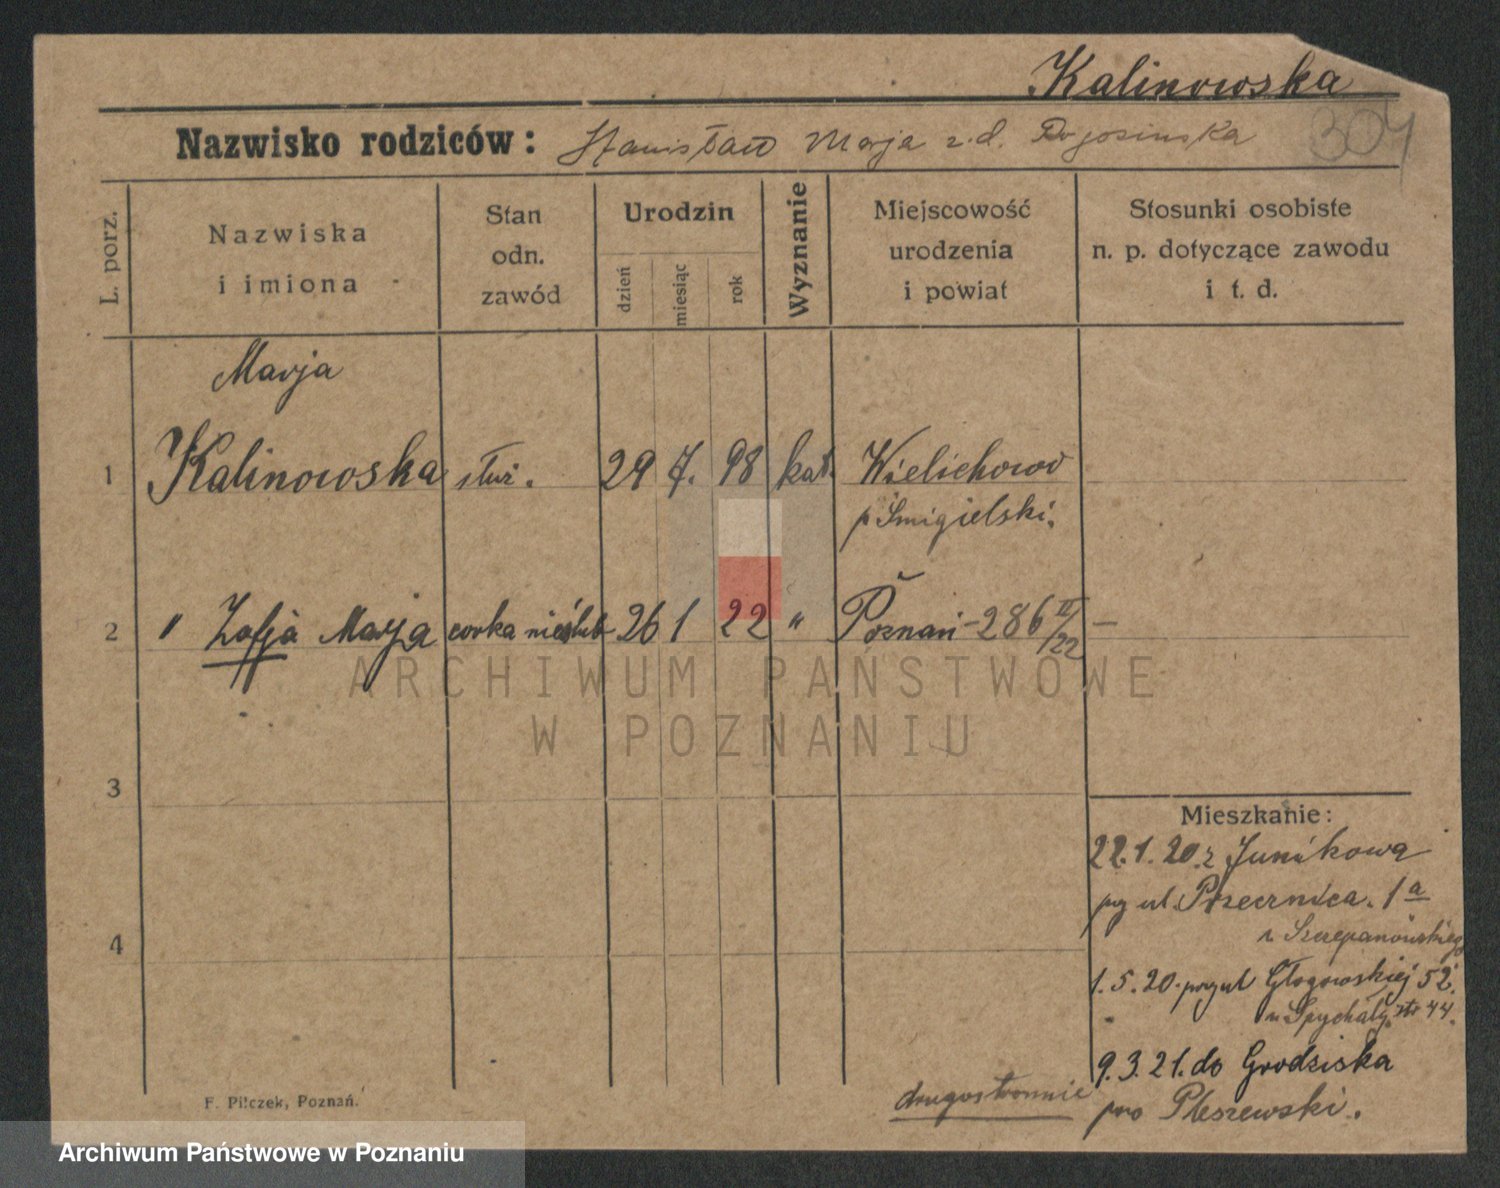 Kalinowska
304
Nazwisko rodziców: Stanisław Marja z.d.
L. porz.
Nazwiska i imiona
Stan odn. zawód
Urodzin
dzień
miesiąc
rok
Wyznanie
Miejscowość urodzenia i powiat
Stosunki osobiste n. p. dotyczące zawodu i t. d.
Marja
1 Kalinowska służ. 29 7. 98 kat. Wielichowo
p Śmigielski.
2 " Zofja Marja corka nieślub 26 1 22 " Poznań - 286 II/22 -
ARCHIWUM PAŃSTWOWE
W POZNANIU
3
4
Mieszkanie:
22.1.20 z Junikowa
przy ul. 1a
u Szczepanowskiego
1.5.20. przy ul Głogowskiej 52.
u Spychały. str 44.
9.3.21. do Grodziska
Pleszewski.
drugostronnie
F. Pilczek, Poznań.
Archiwum Państwowe w Poznaniu